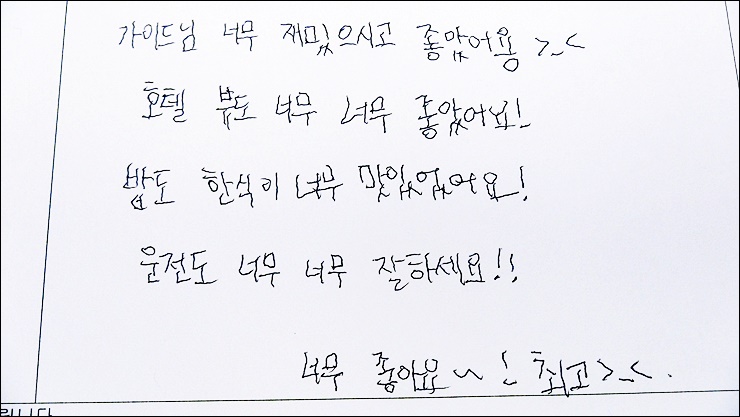 가이드님 너무 재미있으시고 좋았어용 >_<
호텔 뷰도 너무 너무 좋았어요!
밥도 한식이 너무 맛있었어요!
운전도 너무 너무 잘하세요!!
너무 좋아요~! 최고>_<.